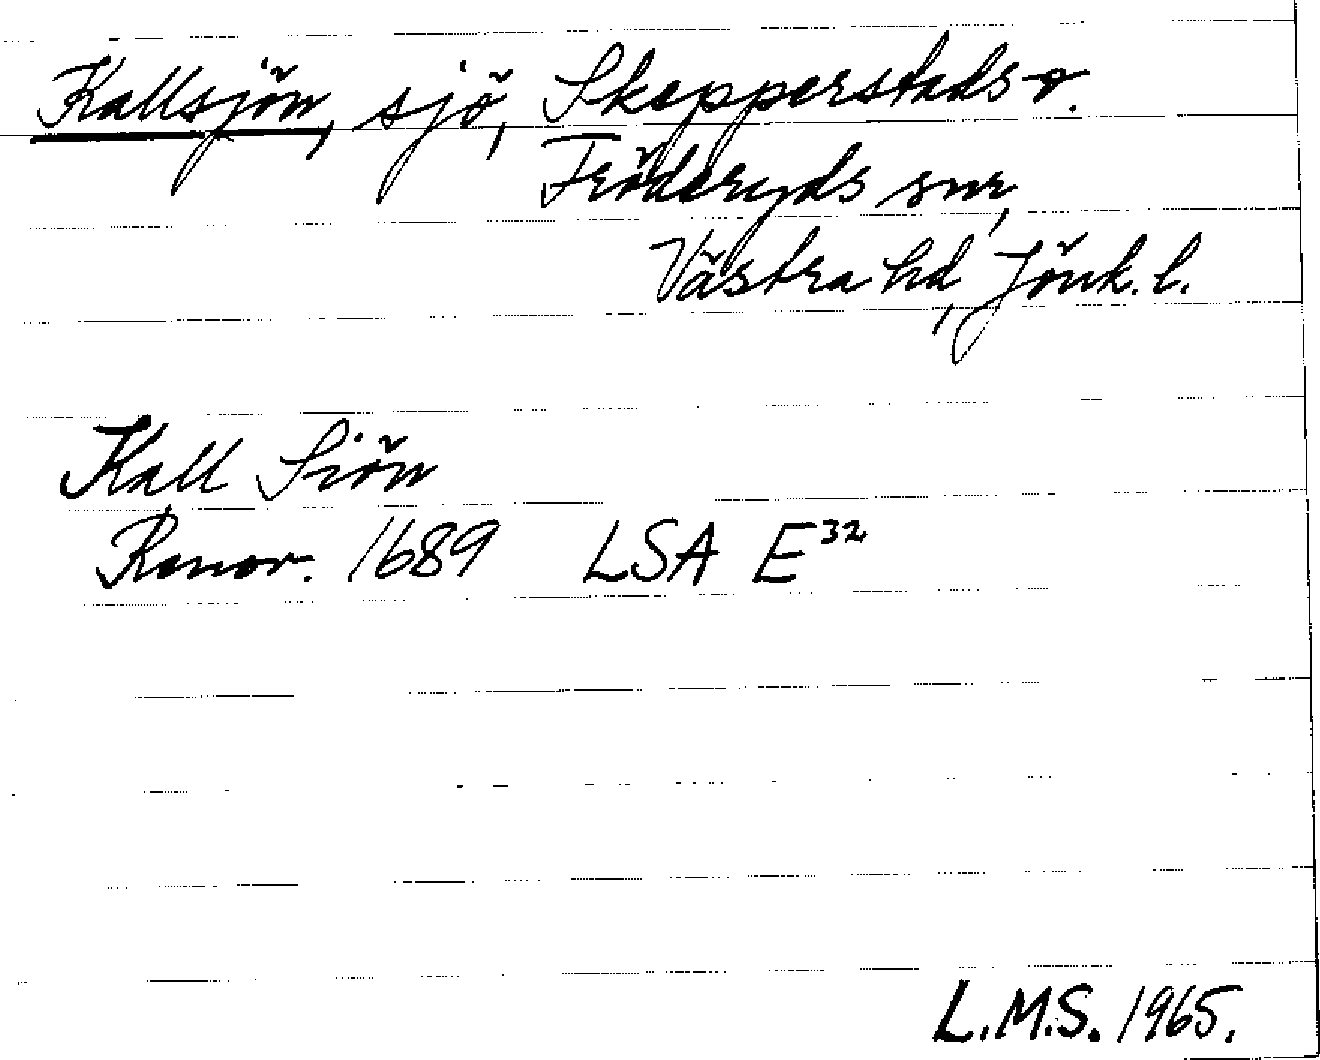 Kallsjön, sjö, Skepperstads o.
Fröderyds snr,
Västra hd, Jönk. l.
Kall Siön
Renov. 1689 LSA E32
L.M.S. 1965.